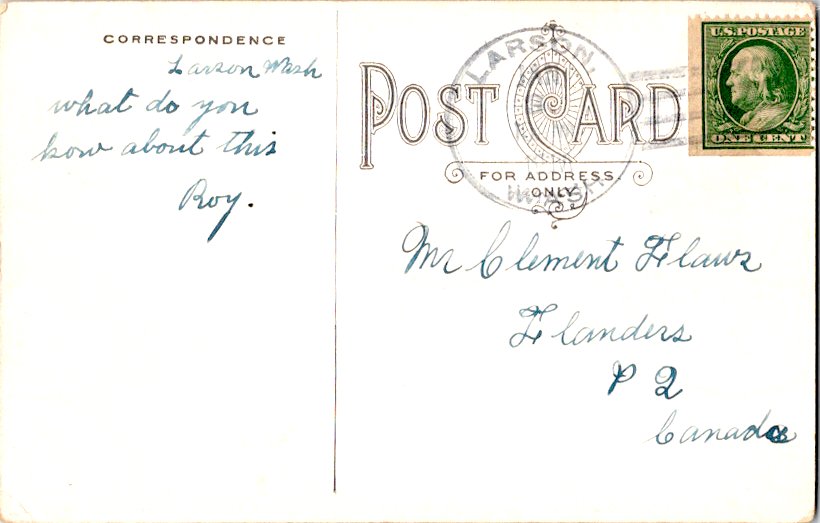 CORRESPONDENCE
Larson Wash
what do you
kow about this
Roy.
POST CARD
FOR ADDRESS
ONLY
LARSON,
WASH
U.S. POSTAGE
ONE CENT
Mr Clement Flaws
Flanders
P Q
Canada